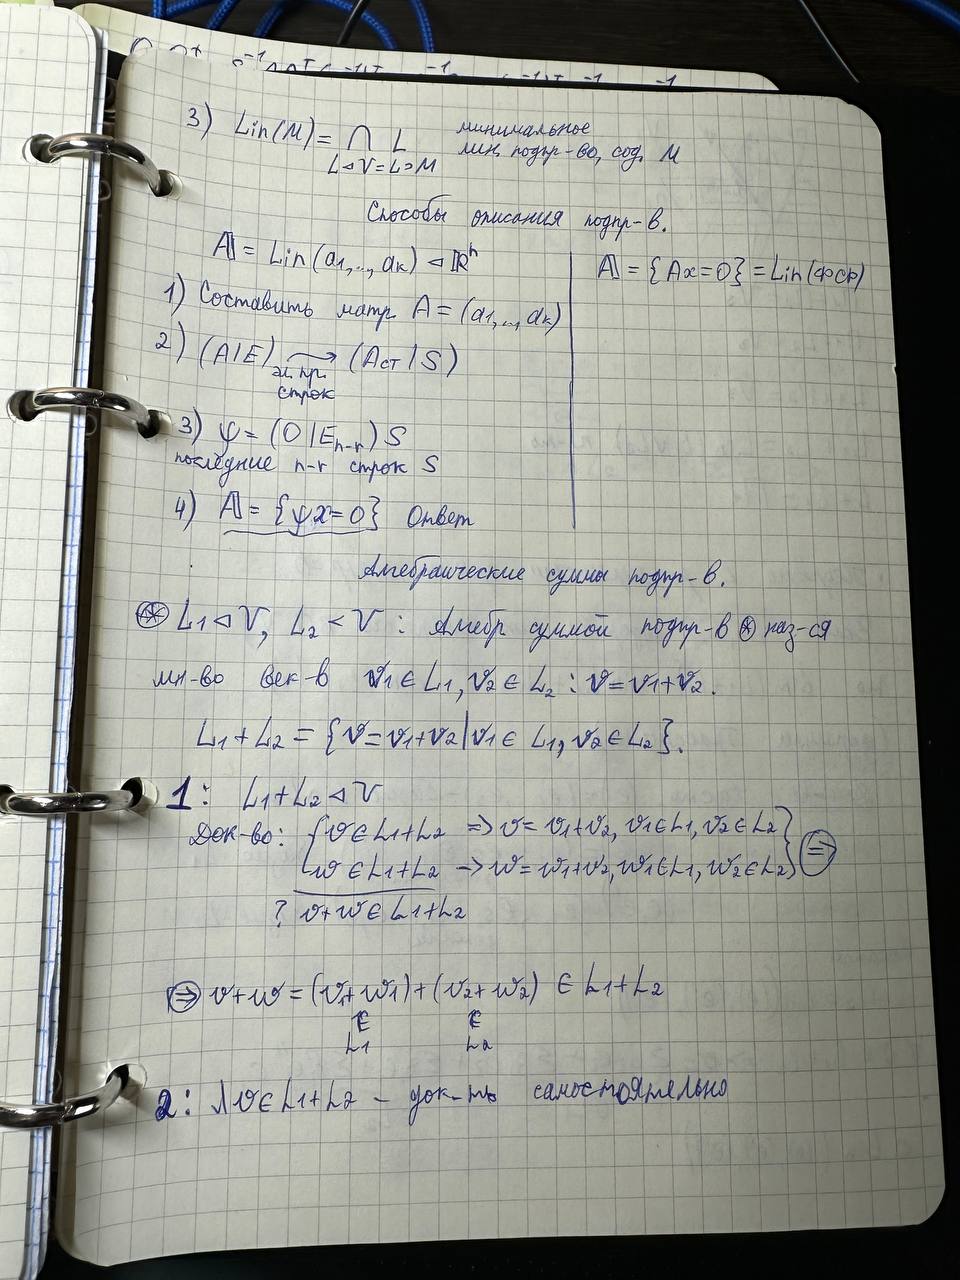 3) Lin(M) = ∩ L минимальное
L⊲V = L⊃M лин. подпр-во, сод. M
Способы описания подпр-в.
𝔸 = Lin(a₁,..,aₖ) ⊲ ℝⁿ
1) Составить матр A = (a₁,..,aₖ)
2) (A|E) ⟶ (Aст | S)
эл. пр.
строк
3) φ = (O | Eₙ₋ᵣ) S
последние n-r строк S
4) 𝔸 = {φx=0} Ответ
𝔸 = {Ax=0} = Lin(фср)
Алгебраические суммы подпр-в.
⊛ L₁⊲V, L₂<V : Алгебр суммой подпр-в ⊛ наз-ся
мн-во век-в v₁∈L₁, v₂∈L₂ : v=v₁+v₂.
L₁+L₂ = {v=v₁+v₂ | v₁∈L₁, v₂∈L₂}.
1: L₁+L₂⊲V
Док-во: { v∈L₁+L₂ => v=v₁+v₂, v₁∈L₁, v₂∈L₂ }
w∈L₁+L₂ -> w=w₁+w₂, w₁∈L₁, w₂∈L₂ ⇒
? v+w∈L₁+L₂
⇒ v+w = (v₁+w₁)+(v₂+w₂) ∈ L₁+L₂
∈ ∈
L₁ L₂
2: λv∈L₁+L₂ - док-ть самостоятельно